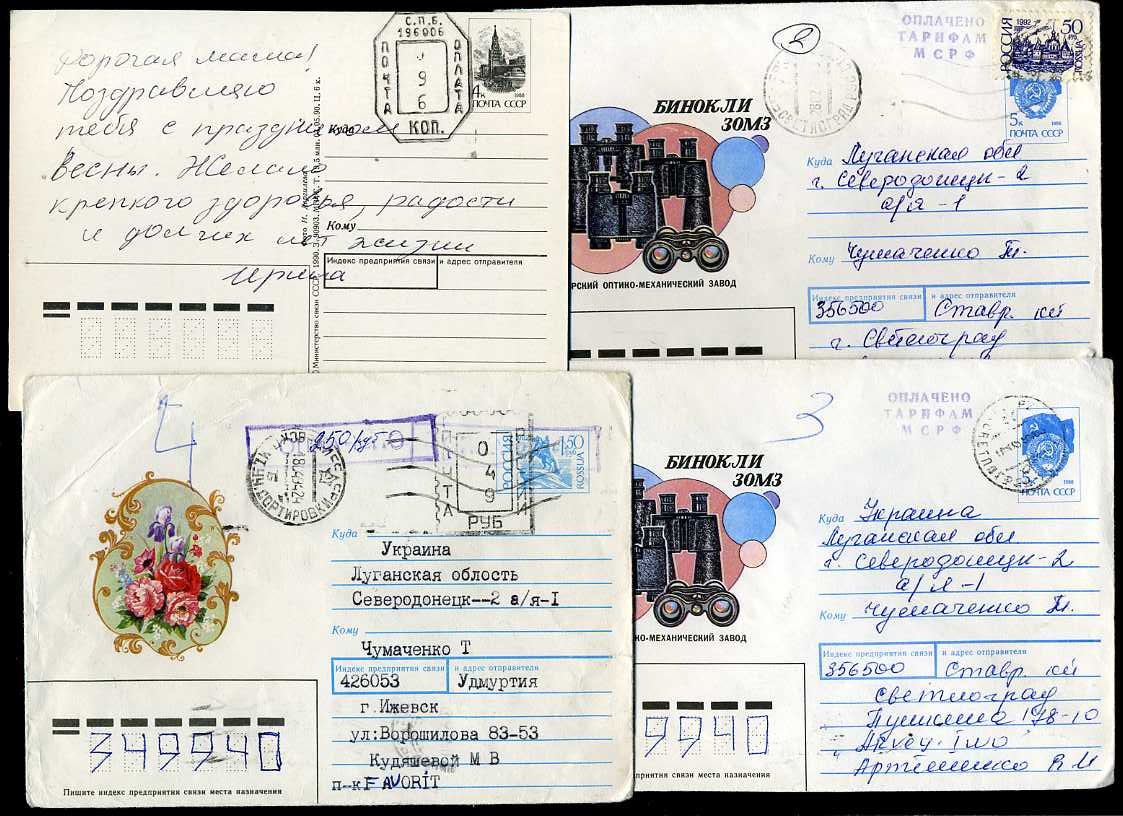 Дорогая мама!
Поздравляю
тебя с праздником
Весны. Желаю
крепкого здоровья, радости
и долгих лет жизни
Ирина
С.П.Б.
196006
ПОЧТА
ОПЛАТА
9
6
КОП.
4к
1988
ПОЧТА СССР
Куда
Кому
Индекс предприятия связи и адрес отправителя
ОПЛАЧЕНО
ТАРИФАМ
МСРФ
1992
50
РОССИЯ
ROSSIJA
5к
1988
ПОЧТА СССР
БИНОКЛИ
ЗОМЗ
РСКИЙ ОПТИКО-МЕХАНИЧЕСКИЙ ЗАВОД
Куда Луганская обл
г. Северодонецк-2
а/я-1
Кому Чумаченко Т.
Индекс предприятия связи и адрес отправителя
356500 Ставр. кй
г. Светлоград
250 руб
РОССИЯ
1.50
ROSSIJA
ПОЧТА
0
4
9
РУБ
Куда
Украина
Луганская облость
Северодонецк--2 а/я-I
Кому
Чумаченко Т
Индекс предприятия связи и адрес отправителя
426053 Удмуртия
г Ижевск
ул:Ворошилова 83-53
Кудяшевой М В
п-к FAVORIT
349940
Пишите индекс предприятия связи места назначения
3
ОПЛАЧЕНО
ТАРИФАМ
МСРФ
5к
1988
ПОЧТА СССР
БИНОКЛИ
ЗОМЗ
КО-МЕХАНИЧЕСКИЙ ЗАВОД
Куда Украина
Луганская обл
г. Северодонецк-2
а/я-1
Кому Чумаченко Т.
Индекс предприятия связи и адрес отправителя
356500 Ставр. кй
Светлоград
Пушкина 178-10
Артеменко В И
9940
дприятия связи места назначения